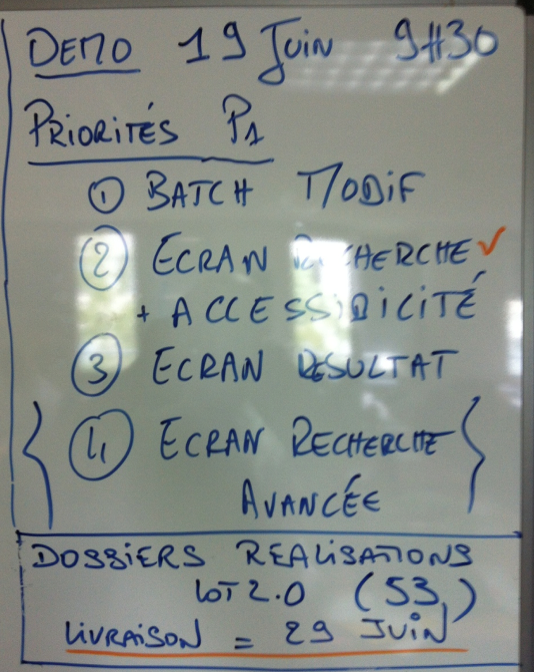 DEMO 19 Juin 9H30
PRIORITÉS P1
① BATCH MODIF
② ECRAN RECHERCHE ✓
+ ACCESSIBILITÉ
③ ECRAN RESULTAT
{ ④ ECRAN RECHERCHE }
AVANCÉE
DOSSIERS REALISATIONS
LOT 2.0 (53)
LIVRAISON = 29 JUIN